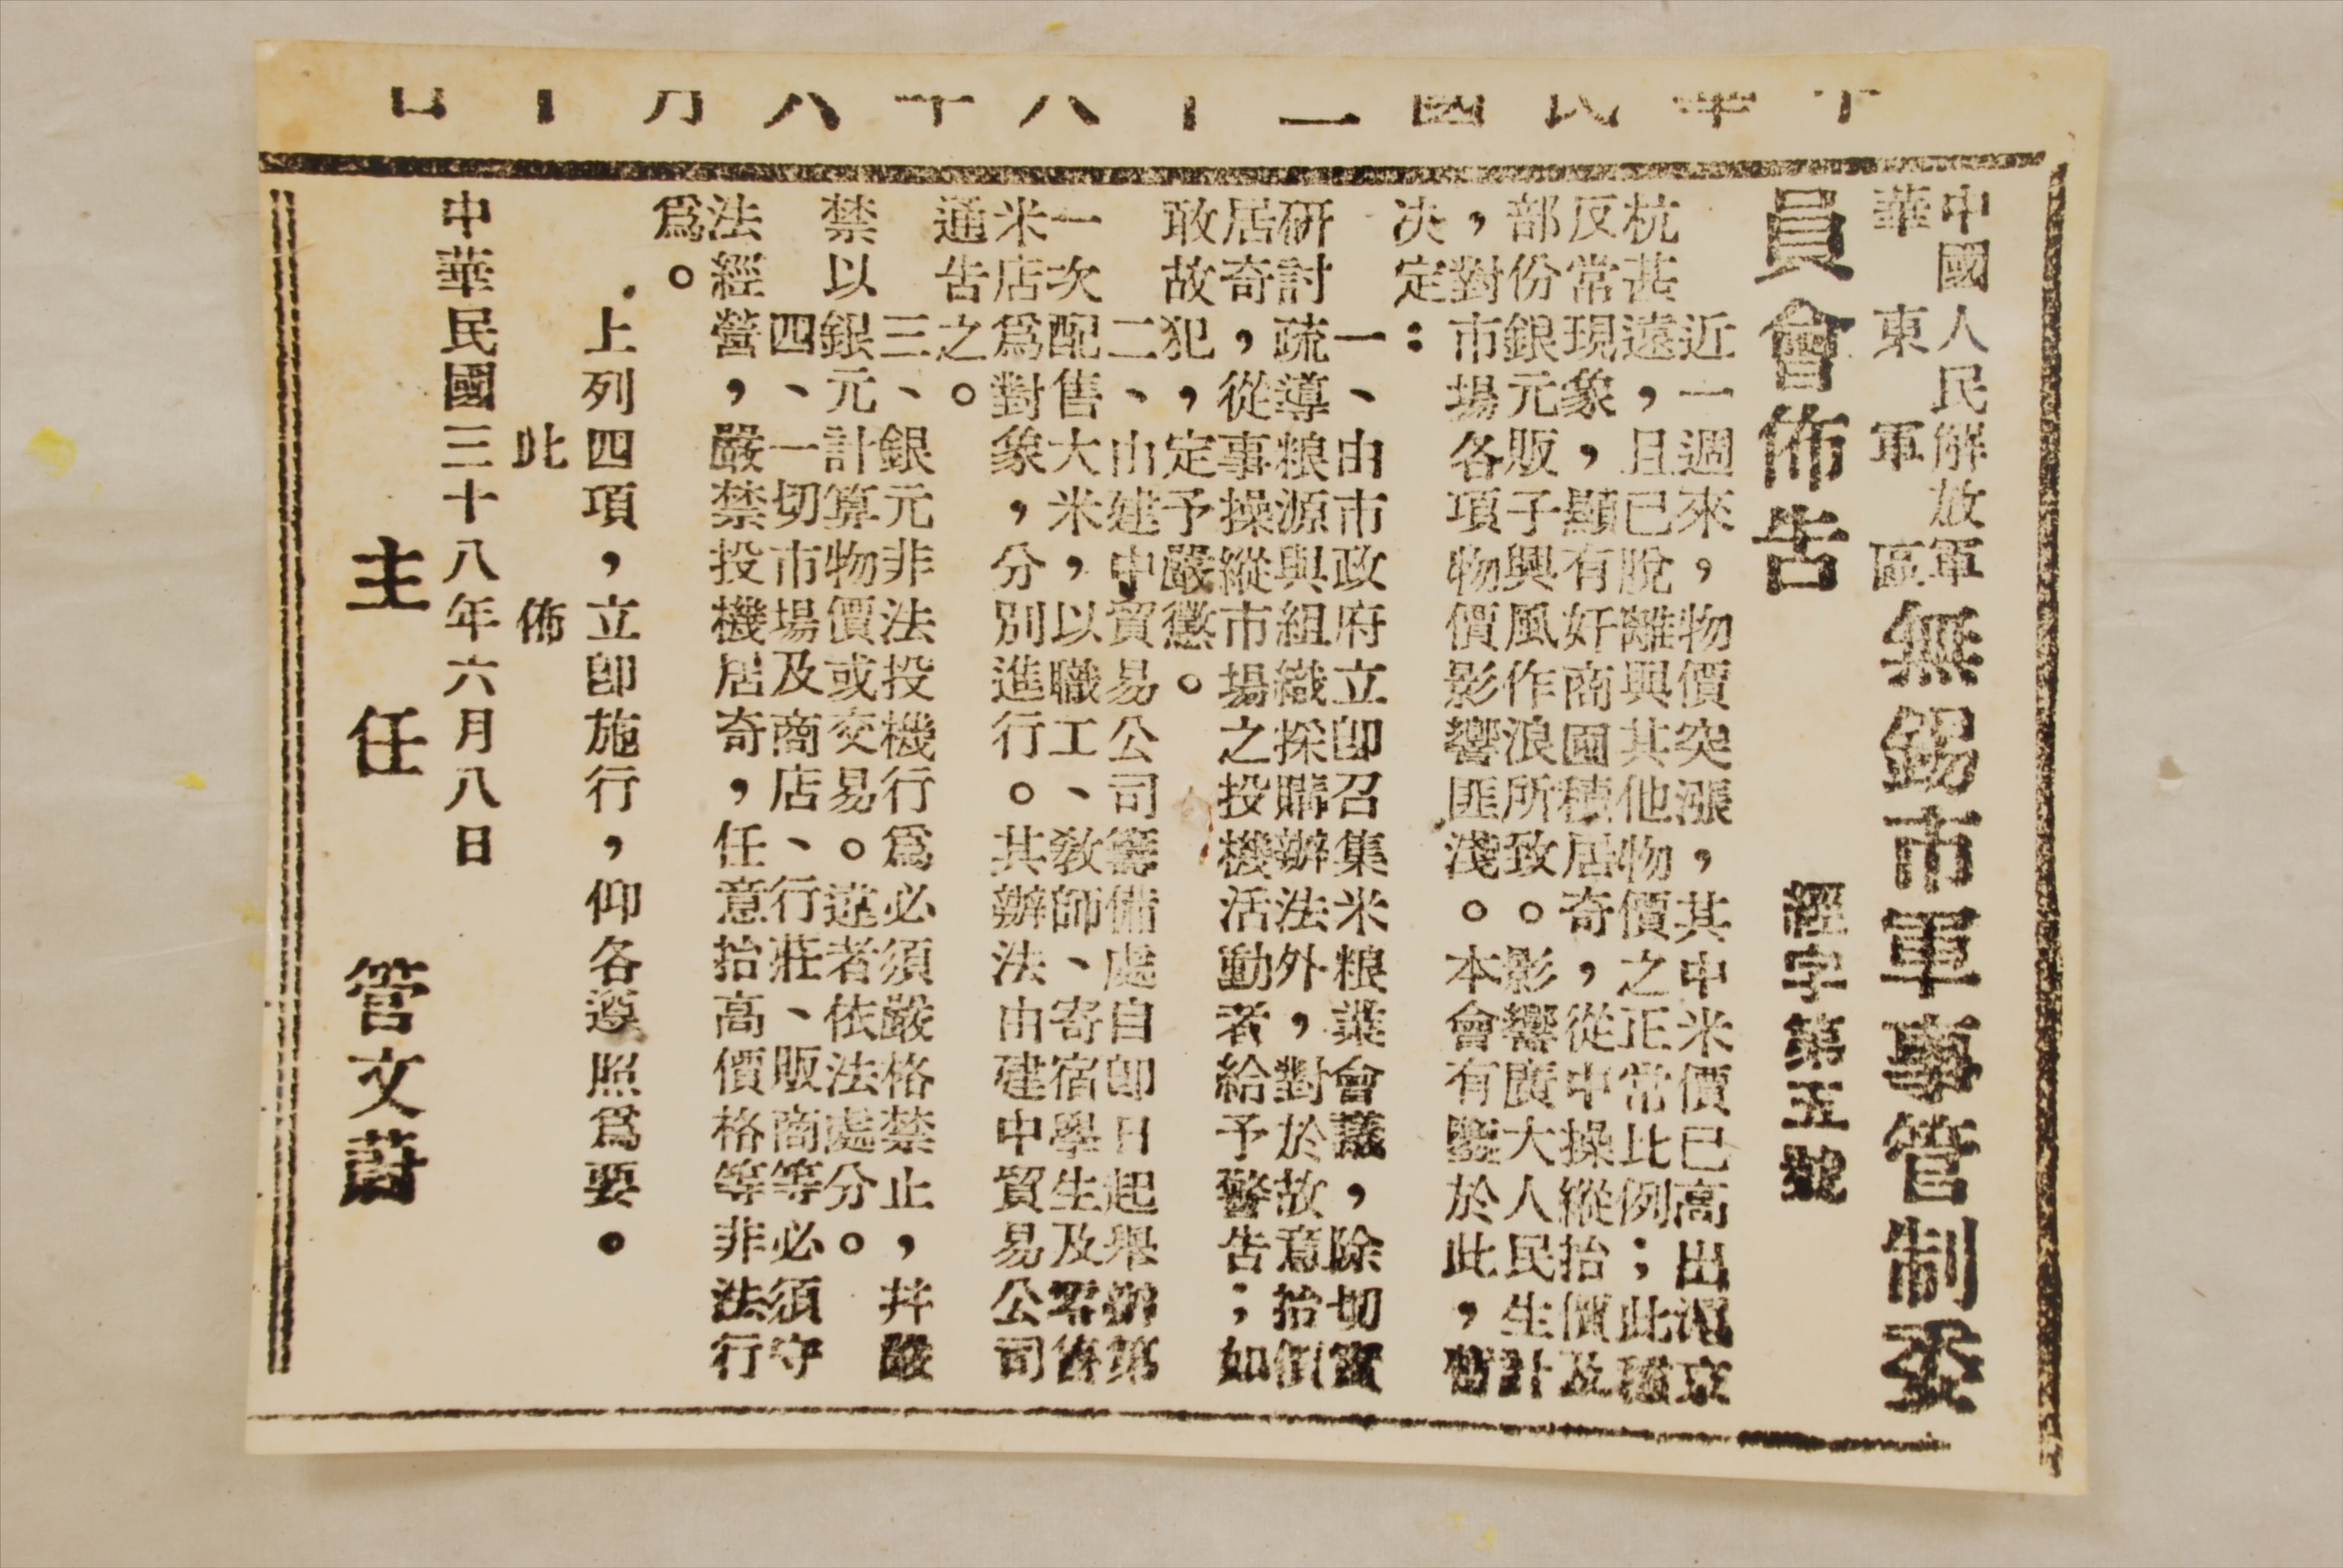 中華民國三十八年六月十日
中國人民解放軍
華東軍區
無錫市軍事管制委
員會佈告
經字第五號
近一週來，物價突漲，其中米價已高出滬京
杭甚遠，且已脫離與其他物價之正常比例；此種
反常現象，顯有奸商囤積居奇，從中操縱抬價及
部份銀元販子興風作浪所致。影響廣大人民生計
，對市場各項物價影響匪淺。本會有鑒於此，暫
決定：
一、由市政府立即召集米粮業會議，除切實
研討疏導粮源與組織採購辦法外，對於故意抬價
居奇，從事操縱市場之投機活動者給予警告；如
敢故犯，定予嚴懲。
二、由建中貿易公司籌備處自即日起舉辦第
一次配售大米，以職工、教師、寄宿學生及零售
米店爲對象，分別進行。其辦法由建中貿易公司
通告之。
三、銀元非法投機行爲必須嚴格禁止，并嚴
禁以銀元計算物價或交易。違者依法處分。
四、一切市場及商店、行莊、販商等必須守
法經營，嚴禁投機居奇，任意抬高價格等非法行
爲。
上列四項，立即施行，仰各遵照爲要。
此佈
中華民國三十八年六月八日
主任 管文蔚